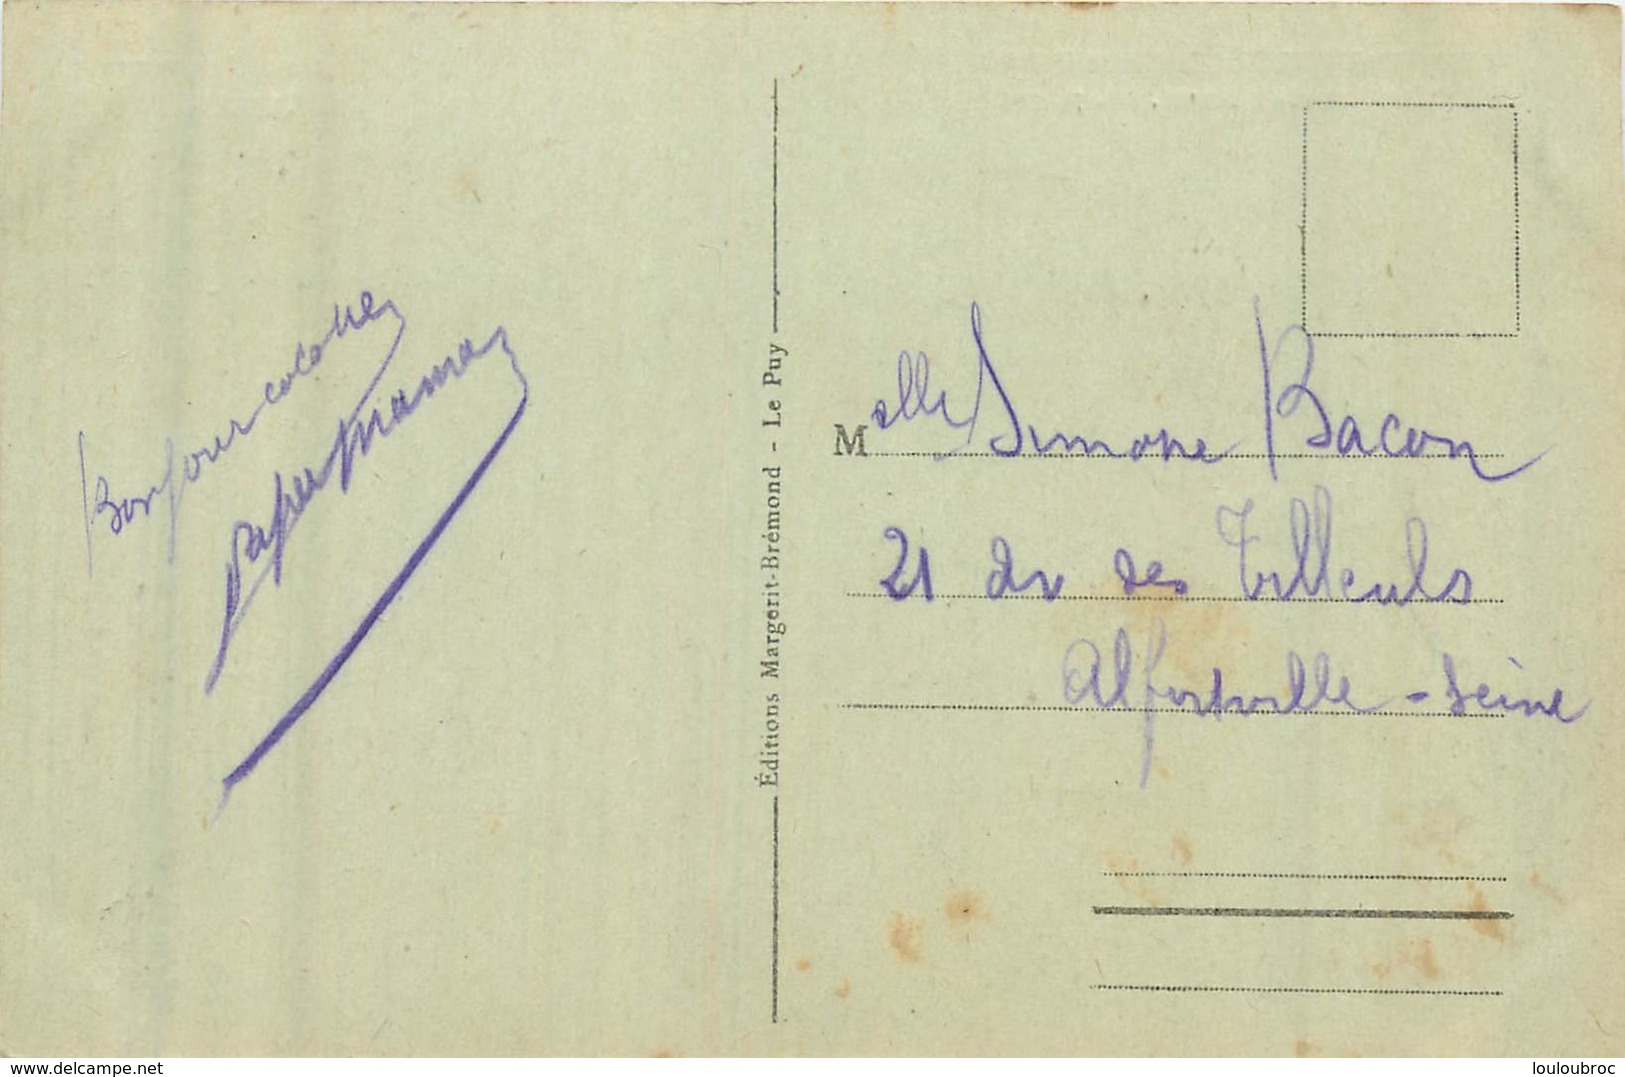 Bonjour cocotte
Papa Maman
Éditions Margerit-Brémond - Le Puy
Melle Simone Bacon
21 av des Tilleuls
Alfortville - Seine
delcampe.net
louloubroc